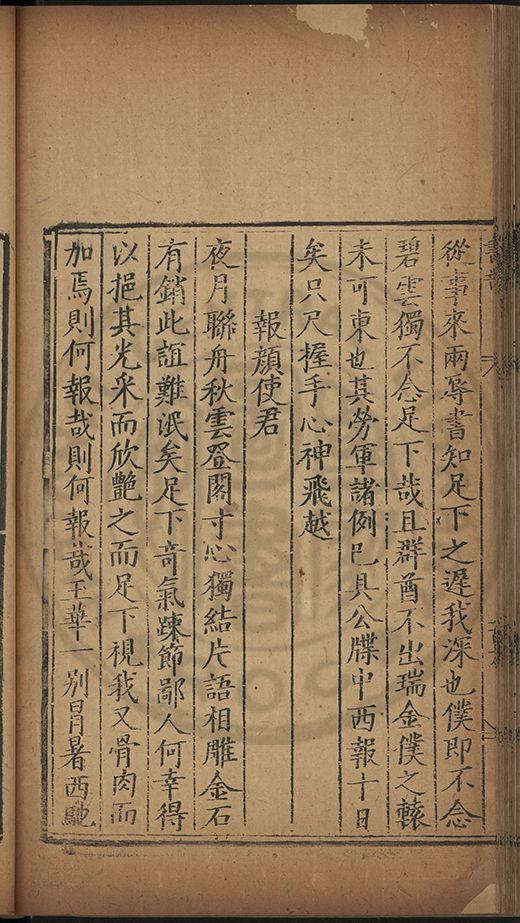 從事來兩辱書知足下之遲我深也僕即不念
碧雲獨不念足下哉且群酋不出瑞金僕之轅
未可東也其勞軍諸例已具公牒中西報十日
矣只尺握手心神飛越
報顏使君
夜月聯舟秋雲登閣寸心獨結片語相雕金石
有銷此誼難泯矣足下奇氣踈節鄙人何幸得
以挹其光采而欣艷之而足下視我又骨肉而
加焉則何報哉則何報哉玉華一別冒暑西馳